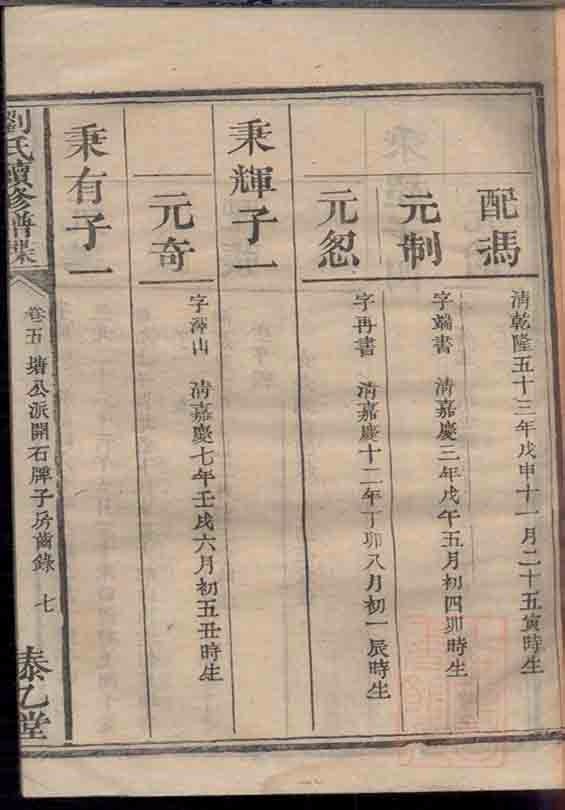 配馮
清乾隆五十三年戊申十一月二十五寅時生
元制
字端書　清嘉慶三年戊午五月初四卯時生
元忽
字再書　清嘉慶十二年丁卯八月初一辰時生
秉輝子一
元奇
字澤山　清嘉慶七年壬戌六月初五丑時生
秉有子一
劉氏續修譜牒
卷五　塘公派開石牌子房齒錄　七
泰乙堂